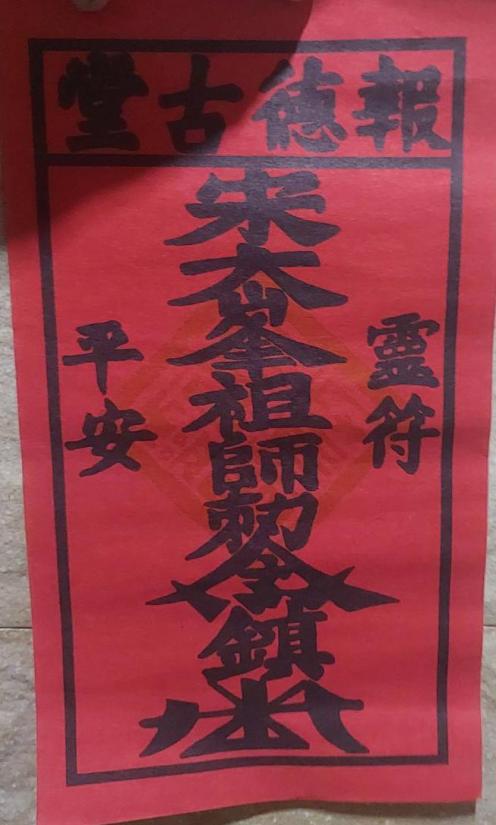 報德古堂
靈符
宋大峯祖師勅令鎮
平安